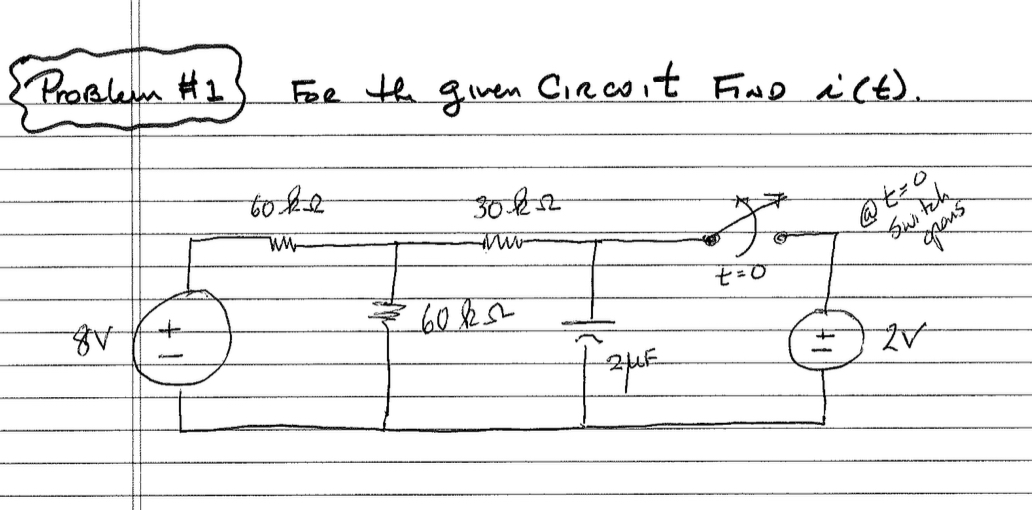 Problem #1 For the given Circuit Find i(t).
60 kΩ
30 kΩ
@ t=0
switch
opens
t=0
8V
+
−
60 kΩ
2μF
+
−
2V